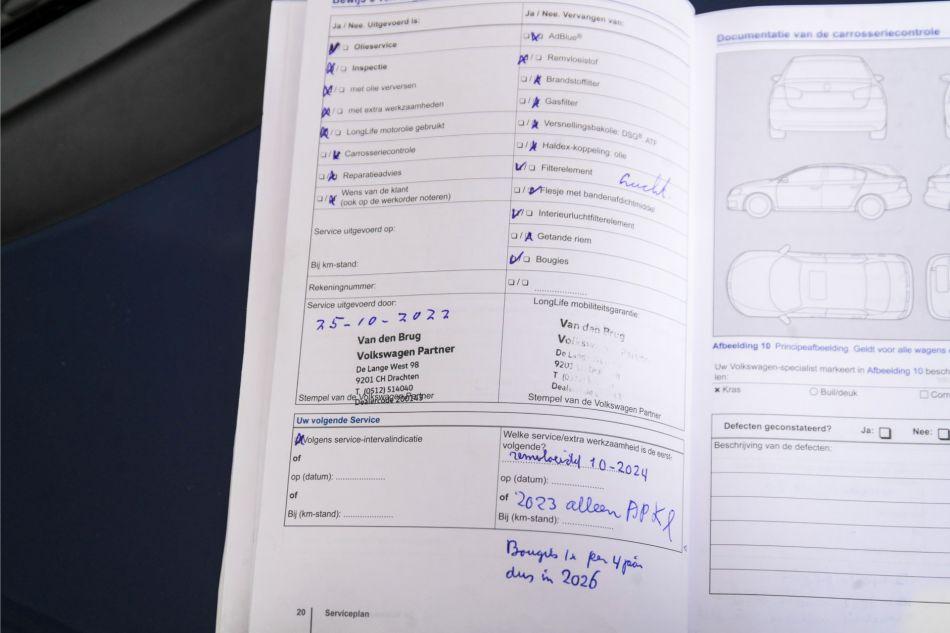 Ja / Nee. Uitgevoerd is:
Olieservice
Inspectie
met olie verversen
met extra werkzaamheden
LongLife motorolie gebruikt
Carrosseriecontrole
Reparatieadvies
Wens van de klant
(ook op de werkorder noteren)
Service uitgevoerd op:
Bij km-stand:
Rekeningnummer:
Service uitgevoerd door:
25-10-2022
Van den Brug
Volkswagen Partner
De Lange West 98
9201 CH Drachten
T. (0512) 514040
Stempel van de Volkswagen Partner
Ja / Nee. Vervangen van:
AdBlue®
Remvloeistof
Brandstoffilter
Gasfilter
Versnellingsbakolie: DSG® ATF
Haldex-koppeling: olie
Filterelement
lucht.
Flesje met bandenafdichtmiddel
Interieurluchtfilterelement
Getande riem
Bougies
LongLife mobiliteitsgarantie:
Van den Brug
Stempel van de Volkswagen Partner
Uw volgende Service
Volgens service-intervalindicatie
of
op (datum): ................
of
Bij (km-stand): ................
Welke service/extra werkzaamheid is de eerst-
volgende?
10-2024
op (datum): ................
of 2023 alleen APK
Bij (km-stand): ................
Bougies 1x per 4 jaar
dus in 2026
20 Serviceplan
Documentatie van de carrosseriecontrole
Afbeelding 10 Principeafbeelding. Geldt voor alle wagens
Uw Volkswagen-specialist markeert in Afbeelding 10
len:
Kras Buil/deuk
Defecten geconstateerd? Ja: Nee:
Beschrijving van de defecten: